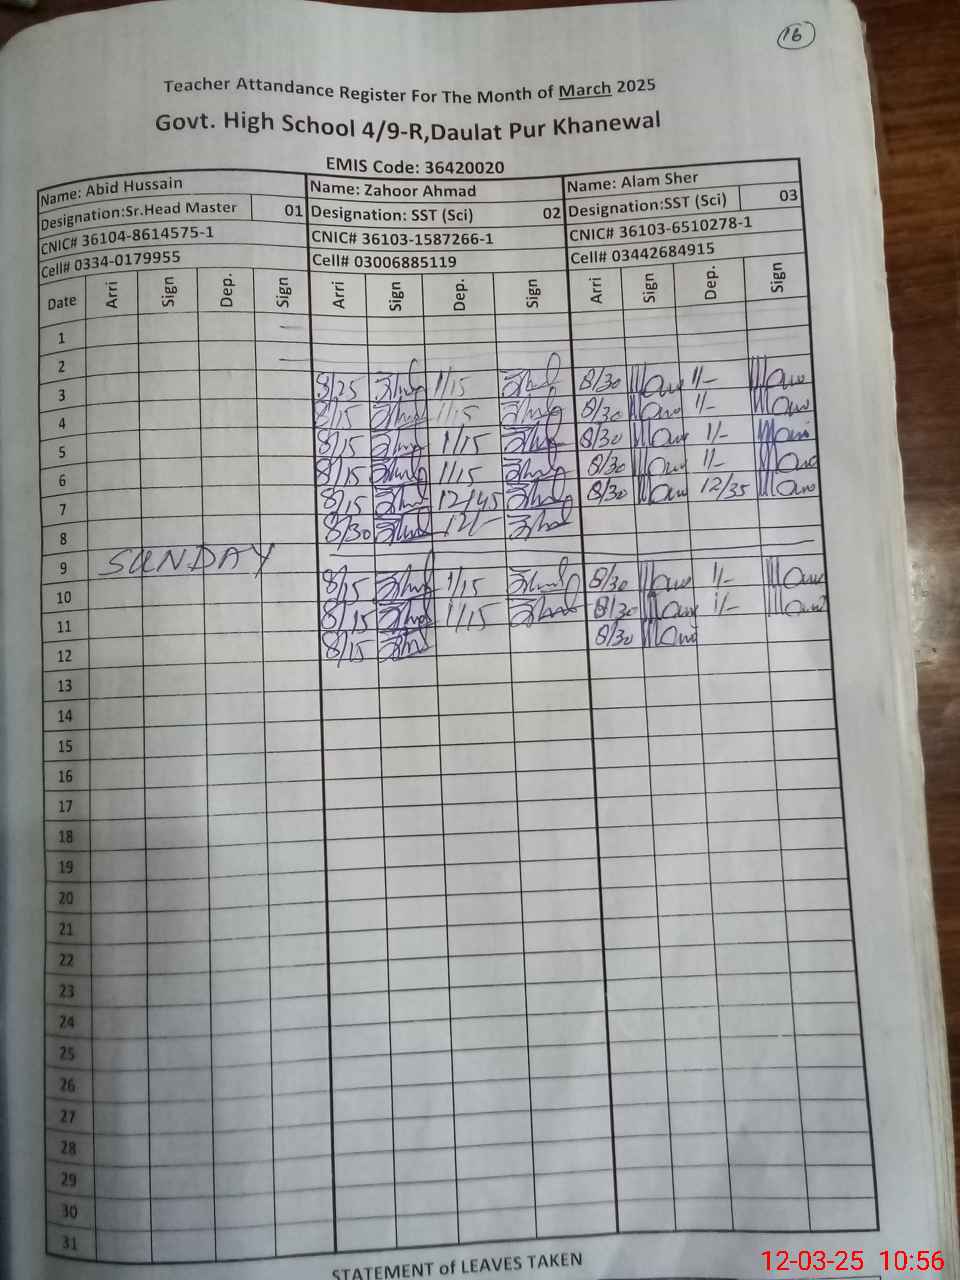 16
Teacher Attandance Register For The Month of March 2025
Govt. High School 4/9-R,Daulat Pur Khanewal
EMIS Code: 36420020
Name: Abid Hussain Name: Zahoor Ahmad Name: Alam Sher
Designation:Sr.Head Master 01 Designation: SST (Sci) 02 Designation:SST (Sci) 03
CNIC# 36104-8614575-1 CNIC# 36103-1587266-1 CNIC# 36103-6510278-1
Cell# 0334-0179955 Cell# 03006885119 Cell# 03442684915
Date Arri Sign Dep. Sign Arri Sign Dep. Sign Arri Sign Dep. Sign
1
2
3 8/25 1/15 8/30 1/-
4 8/15 1/15 8/30 1/-
5 8/15 1/15 8/30 1/-
6 8/15 1/15 8/30 1/-
7 8/15 12/45 8/30 12/35
8 8/30 12/-
9 SUNDAY
10 8/15 1/15 8/30 1/-
11 8/15 1/15 8/30 1/-
12 8/15 8/30
13
14
15
16
17
18
19
20
21
22
23
24
25
26
27
28
29
30
31
STATEMENT of LEAVES TAKEN
12-03-25 10:56